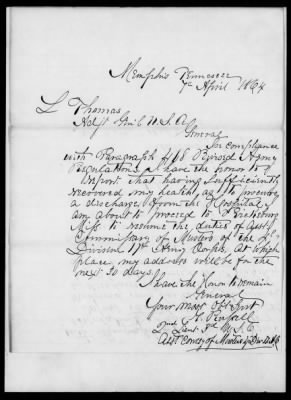 Memphis Tennessee
7th April 1864
L Thomas
Adjt Genl U.S.A.
General
In compliance
with Paragraph 468 Revised Army
Regulations, I have the honor to
report that having sufficiently
recovered my health as to procure
a discharge from the Hospital, I
am about to proceed to Vicksburg
Miss to resume the duties of Asst
Commissary of Musters of the
Division 17th Army Corps. At which
place my address will be for the
next 30 days.
I have the Honor to remain
General
Your most Obt Servt
2nd Lieut